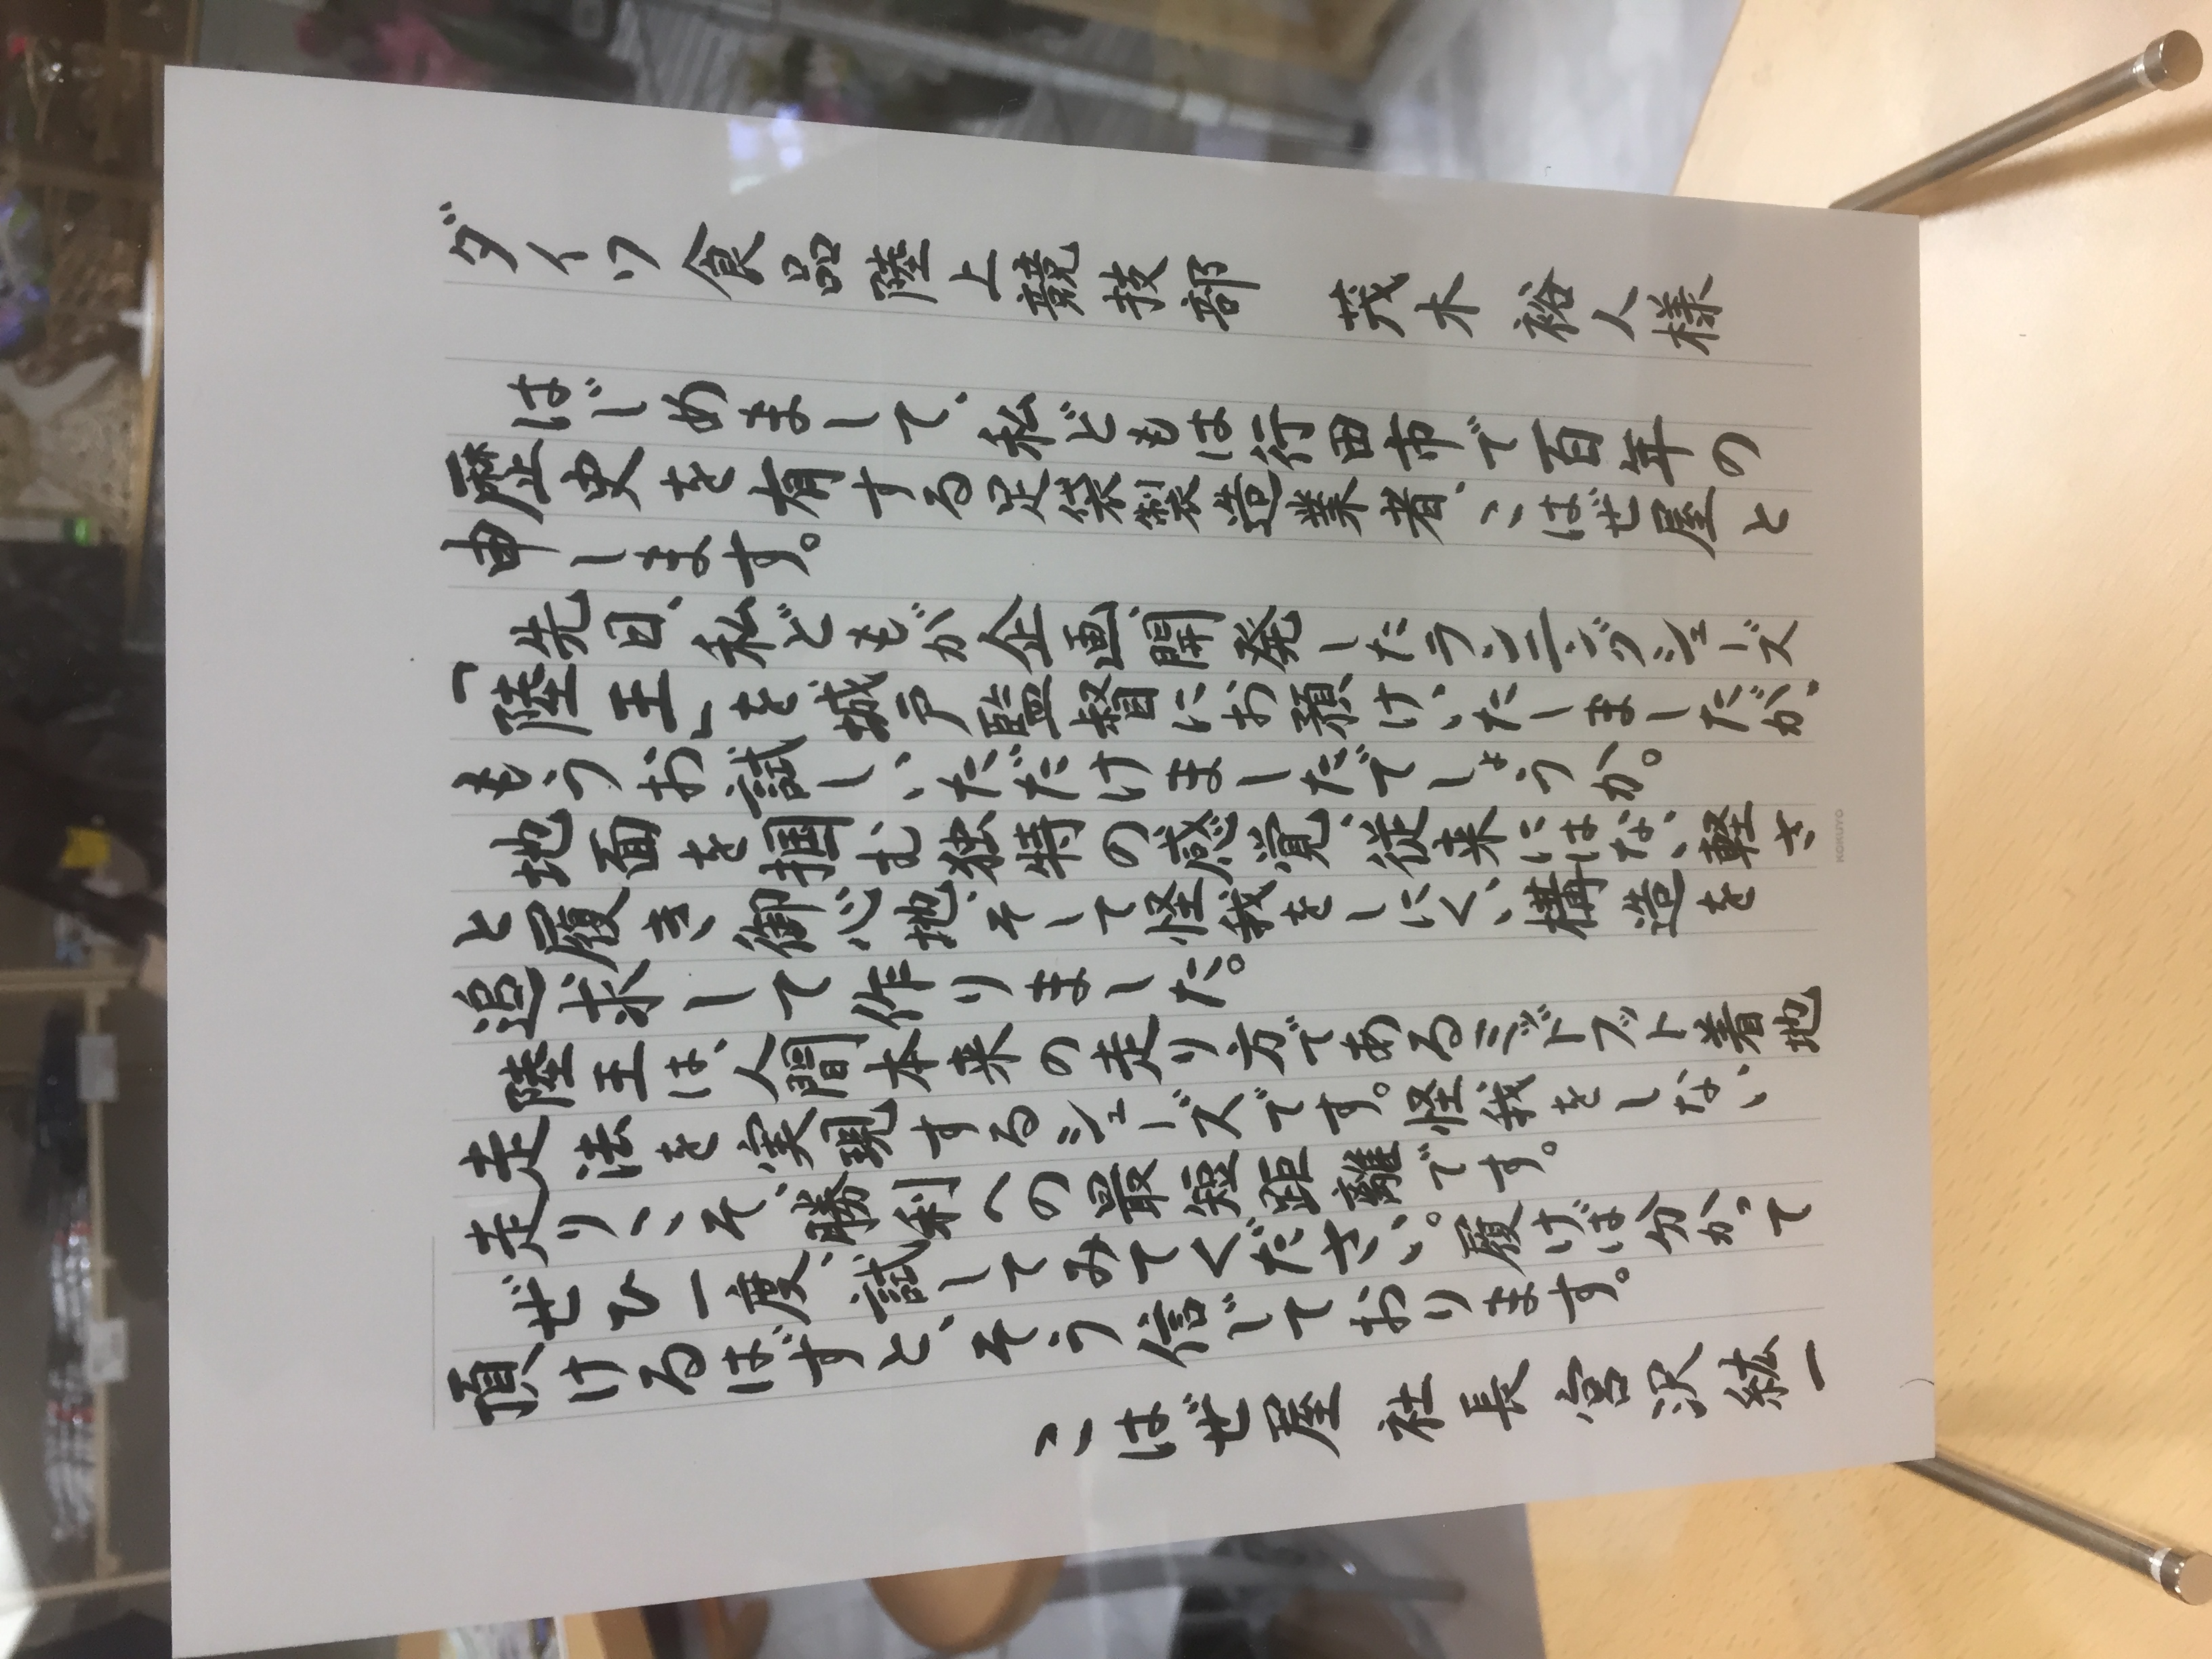 ダイワ食品陸上競技部　茂木裕人様
はじめまして、私どもは行田市で百年の
歴史を有する足袋製造業者、こはぜ屋と
申します。
先日、私どもが企画、開発したランニングシューズ
「陸王」を城戸監督にお預けいたしましたが、
もうお試しいただけましたでしょうか。
地面を掴む独特の感覚、従来にはない軽さ
と履き御心地、そして怪我をしにくい構造を
追求して作りました。
陸王は、人間本来の走り方であるミッドフット着地
走法を実現するシューズです。怪我をしない
走りこそ、勝利への最短距離です。
ぜひ一度、試してみてください。履けば分かって
頂けるはずと、そう信じております。
こはぜ屋　社長　宮沢紘一
KOKUYO